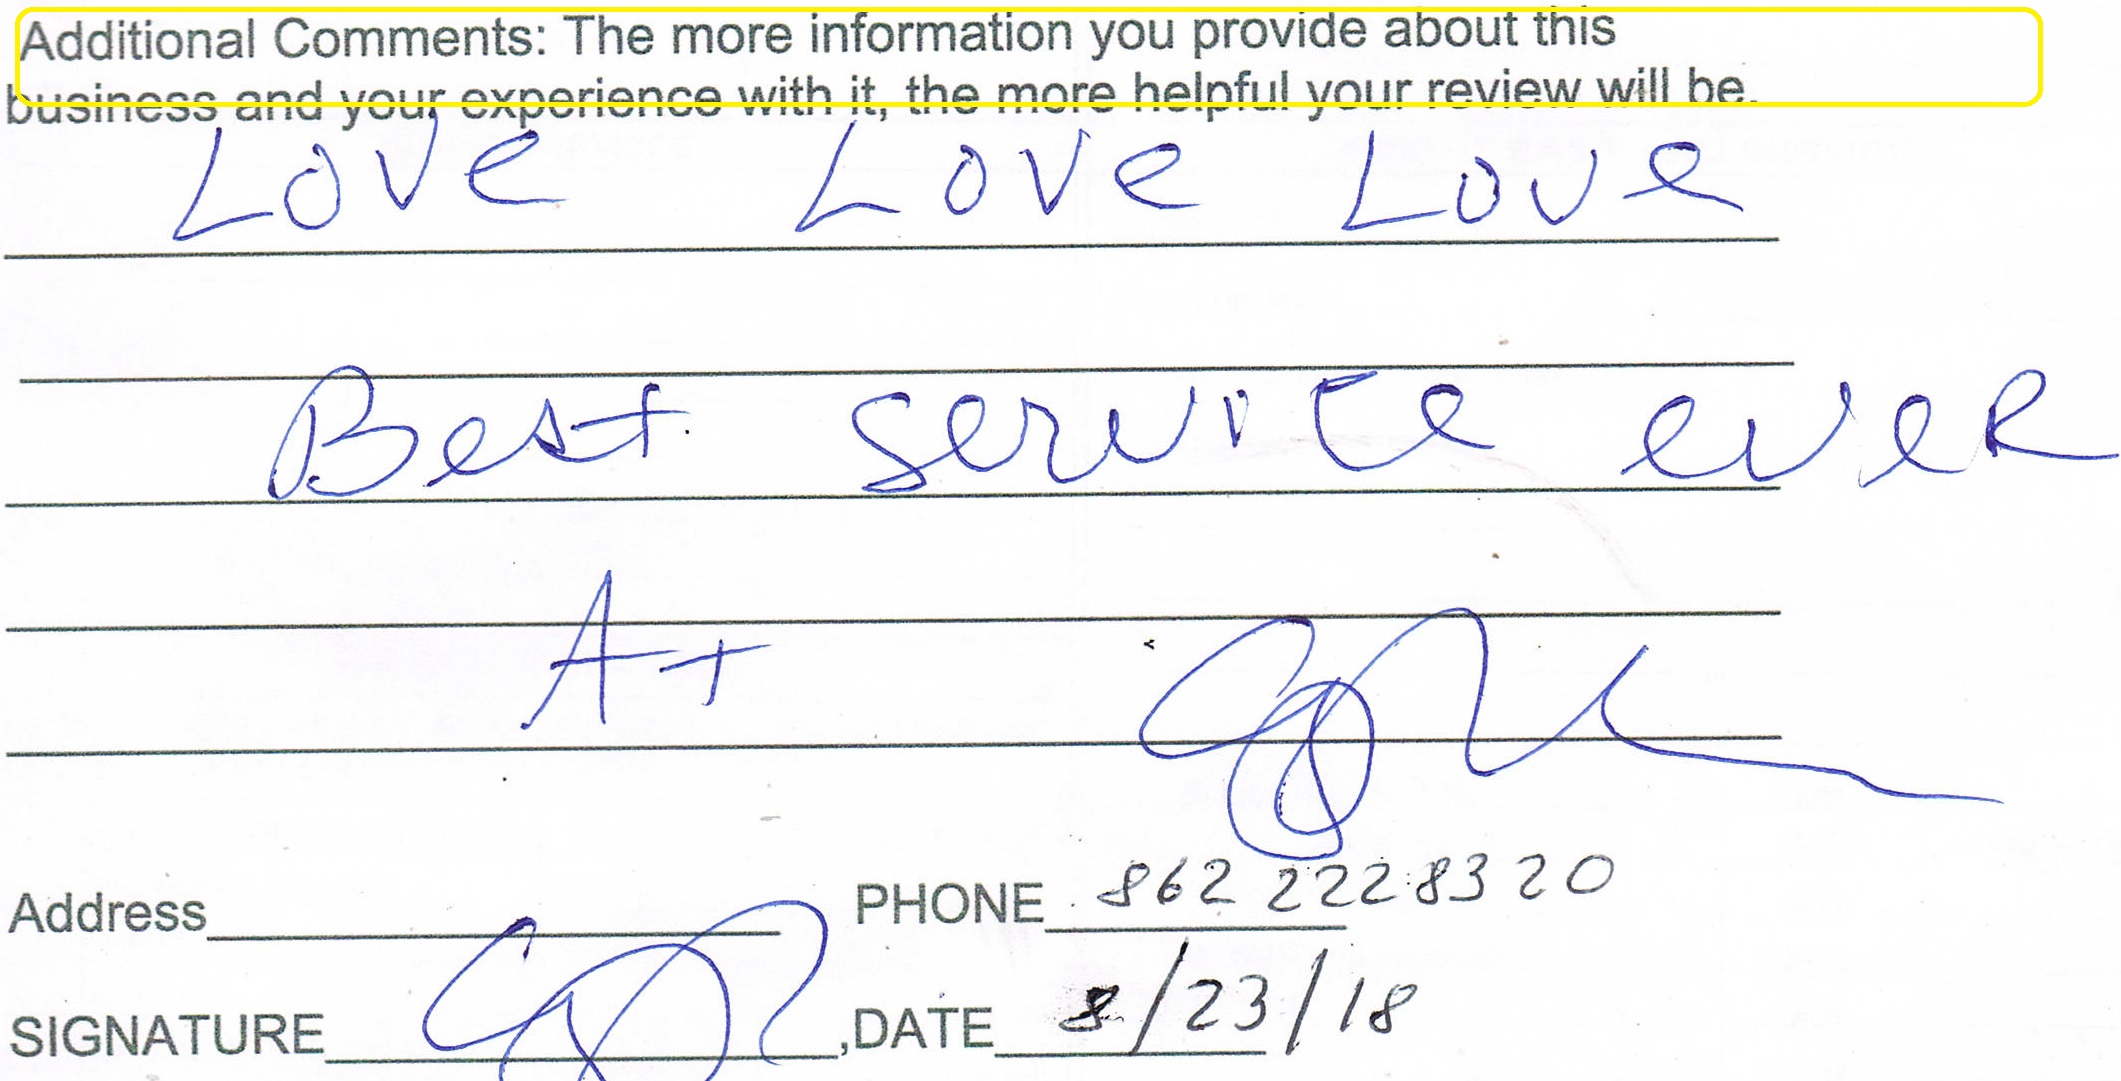 Additional Comments: The more information you provide about this
business and your experience with it, the more helpful your review will be.
Love Love Love
Best service ever
A+
Address PHONE 862 2228320
SIGNATURE ,DATE 8/23/18